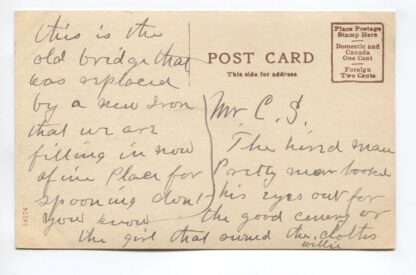 this is the
old bridge that
was replaced
by a new Iron
that we are
filling in now
a fine Place for
spooning dont
you know
POST CARD
This side for address
Place Postage
Stamp Here
Domestic and
Canada
One Cent
Foreign
Two Cents
Mr C. S.
The hired man
Pretty near looked
his eyes out for
the good cenery or
the girl that owned the clothes
Willie